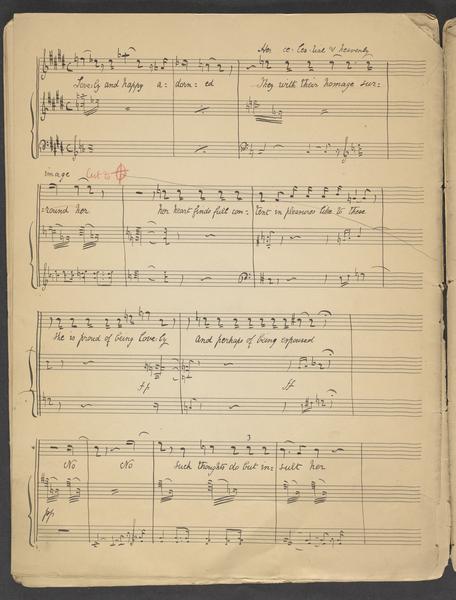 Her ce-les-tial & heavenly
Love-ly and happy a-dorn-ed They with their homage sur-
image Cut to
-round her her heart finds full con-tent in pleasures like to these
She is proud of being love-ly and perhaps of being espoused
ff ff
No No such thoughts do but in-sult her
3
pp